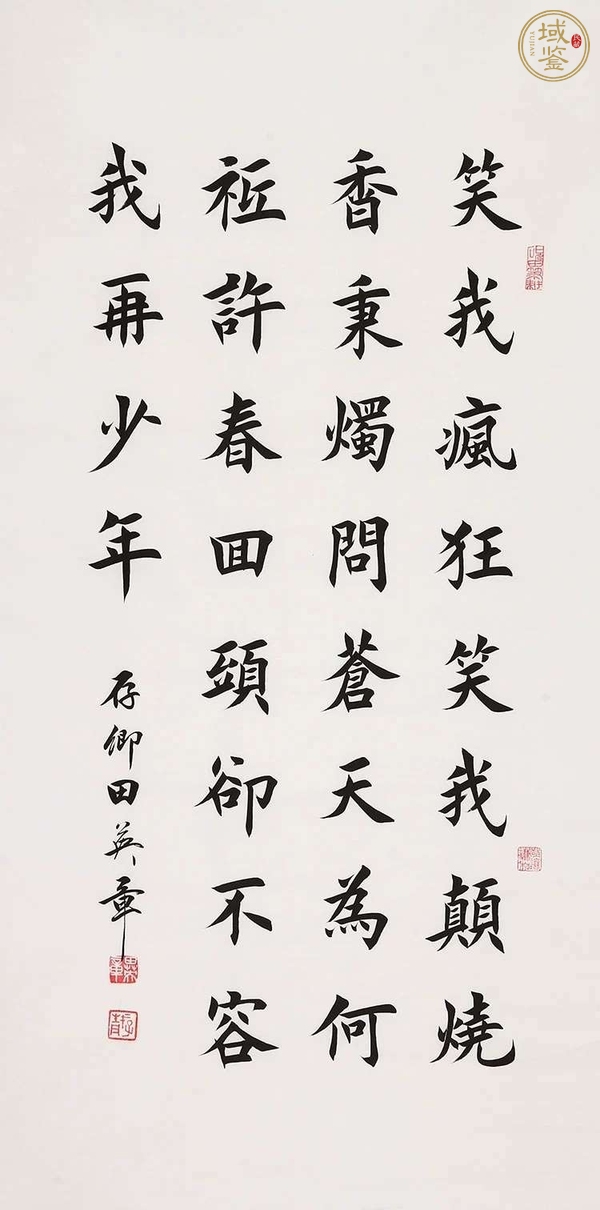 域鉴
YUJIAN
笑我瘋狂笑我顛燒
香秉燭問蒼天為何
祗許春囬頭卻不容
我再少年
存卿田英章